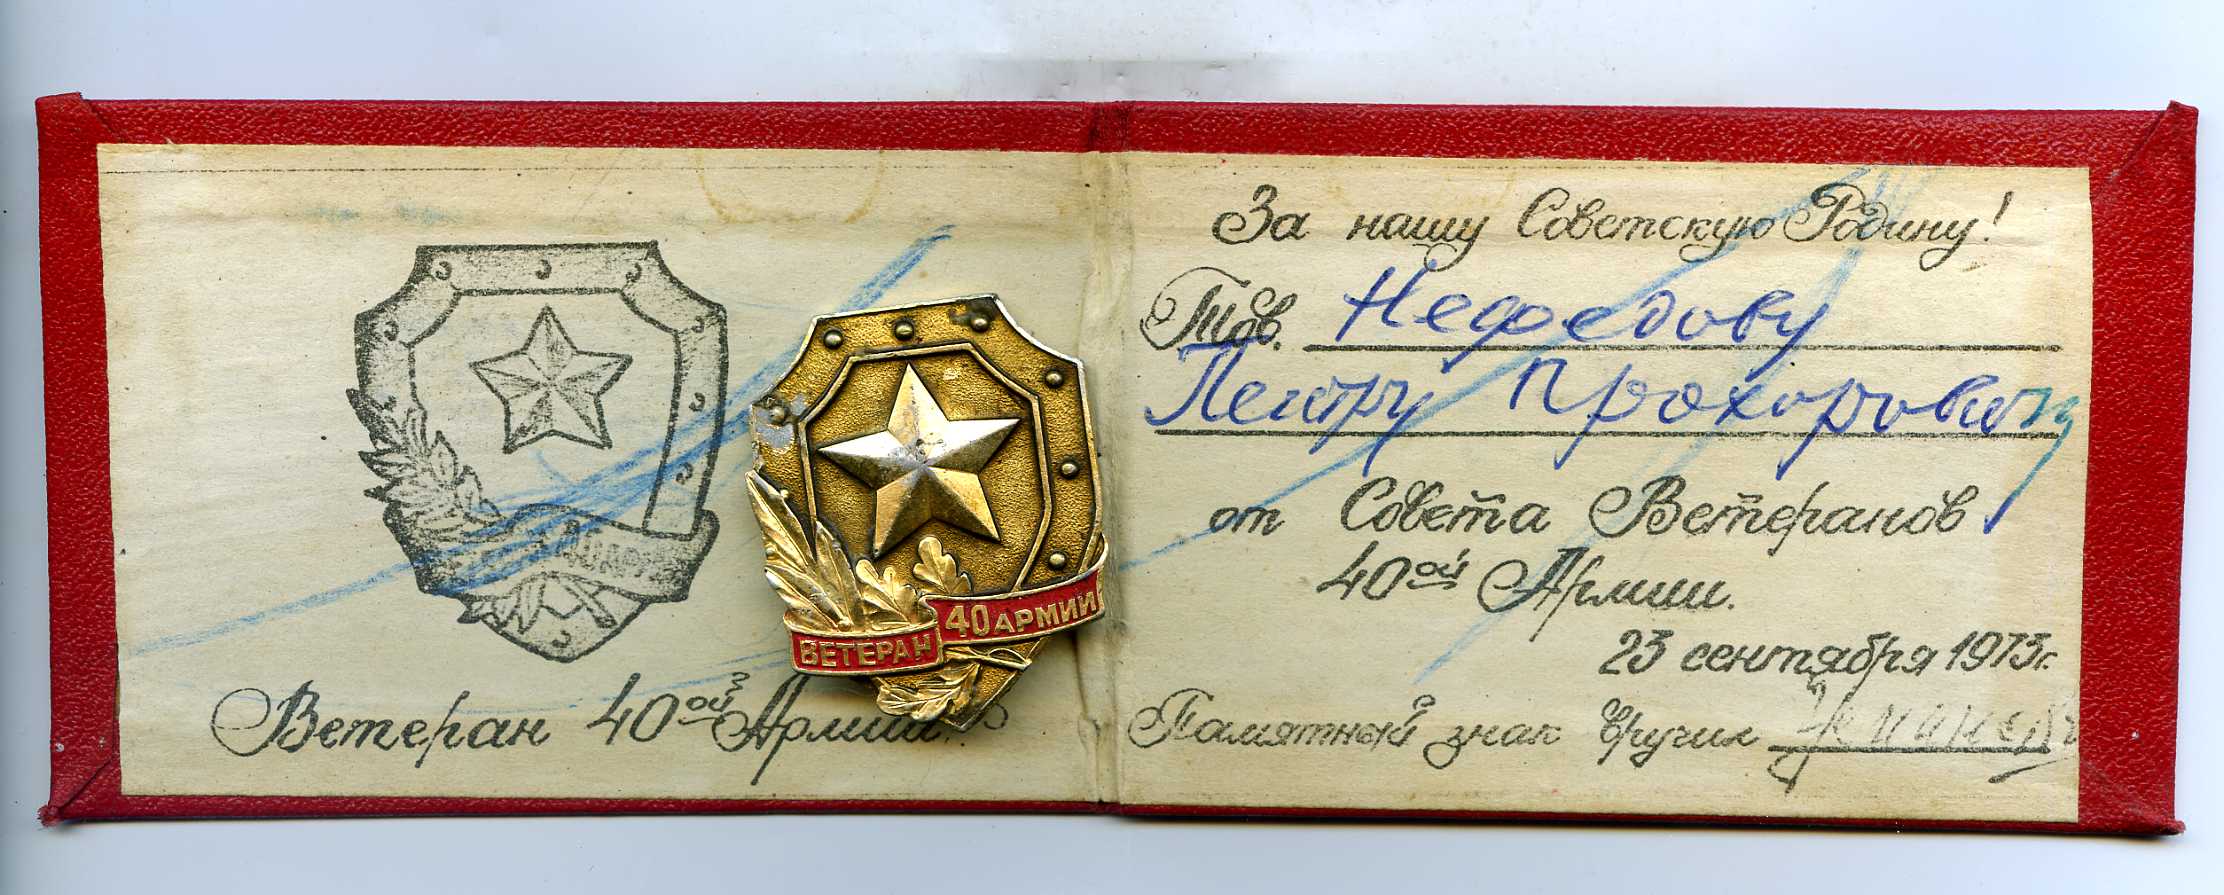 Ветеран 40ой Армии.
ВЕТЕРАН 40 АРМИИ
За нашу Советскую Родину!
Тов. Нефедову
Петру Прохоровичу
от Совета Ветеранов
40ой Армии.
23 сентября 1973г.
Памятный знак вручил